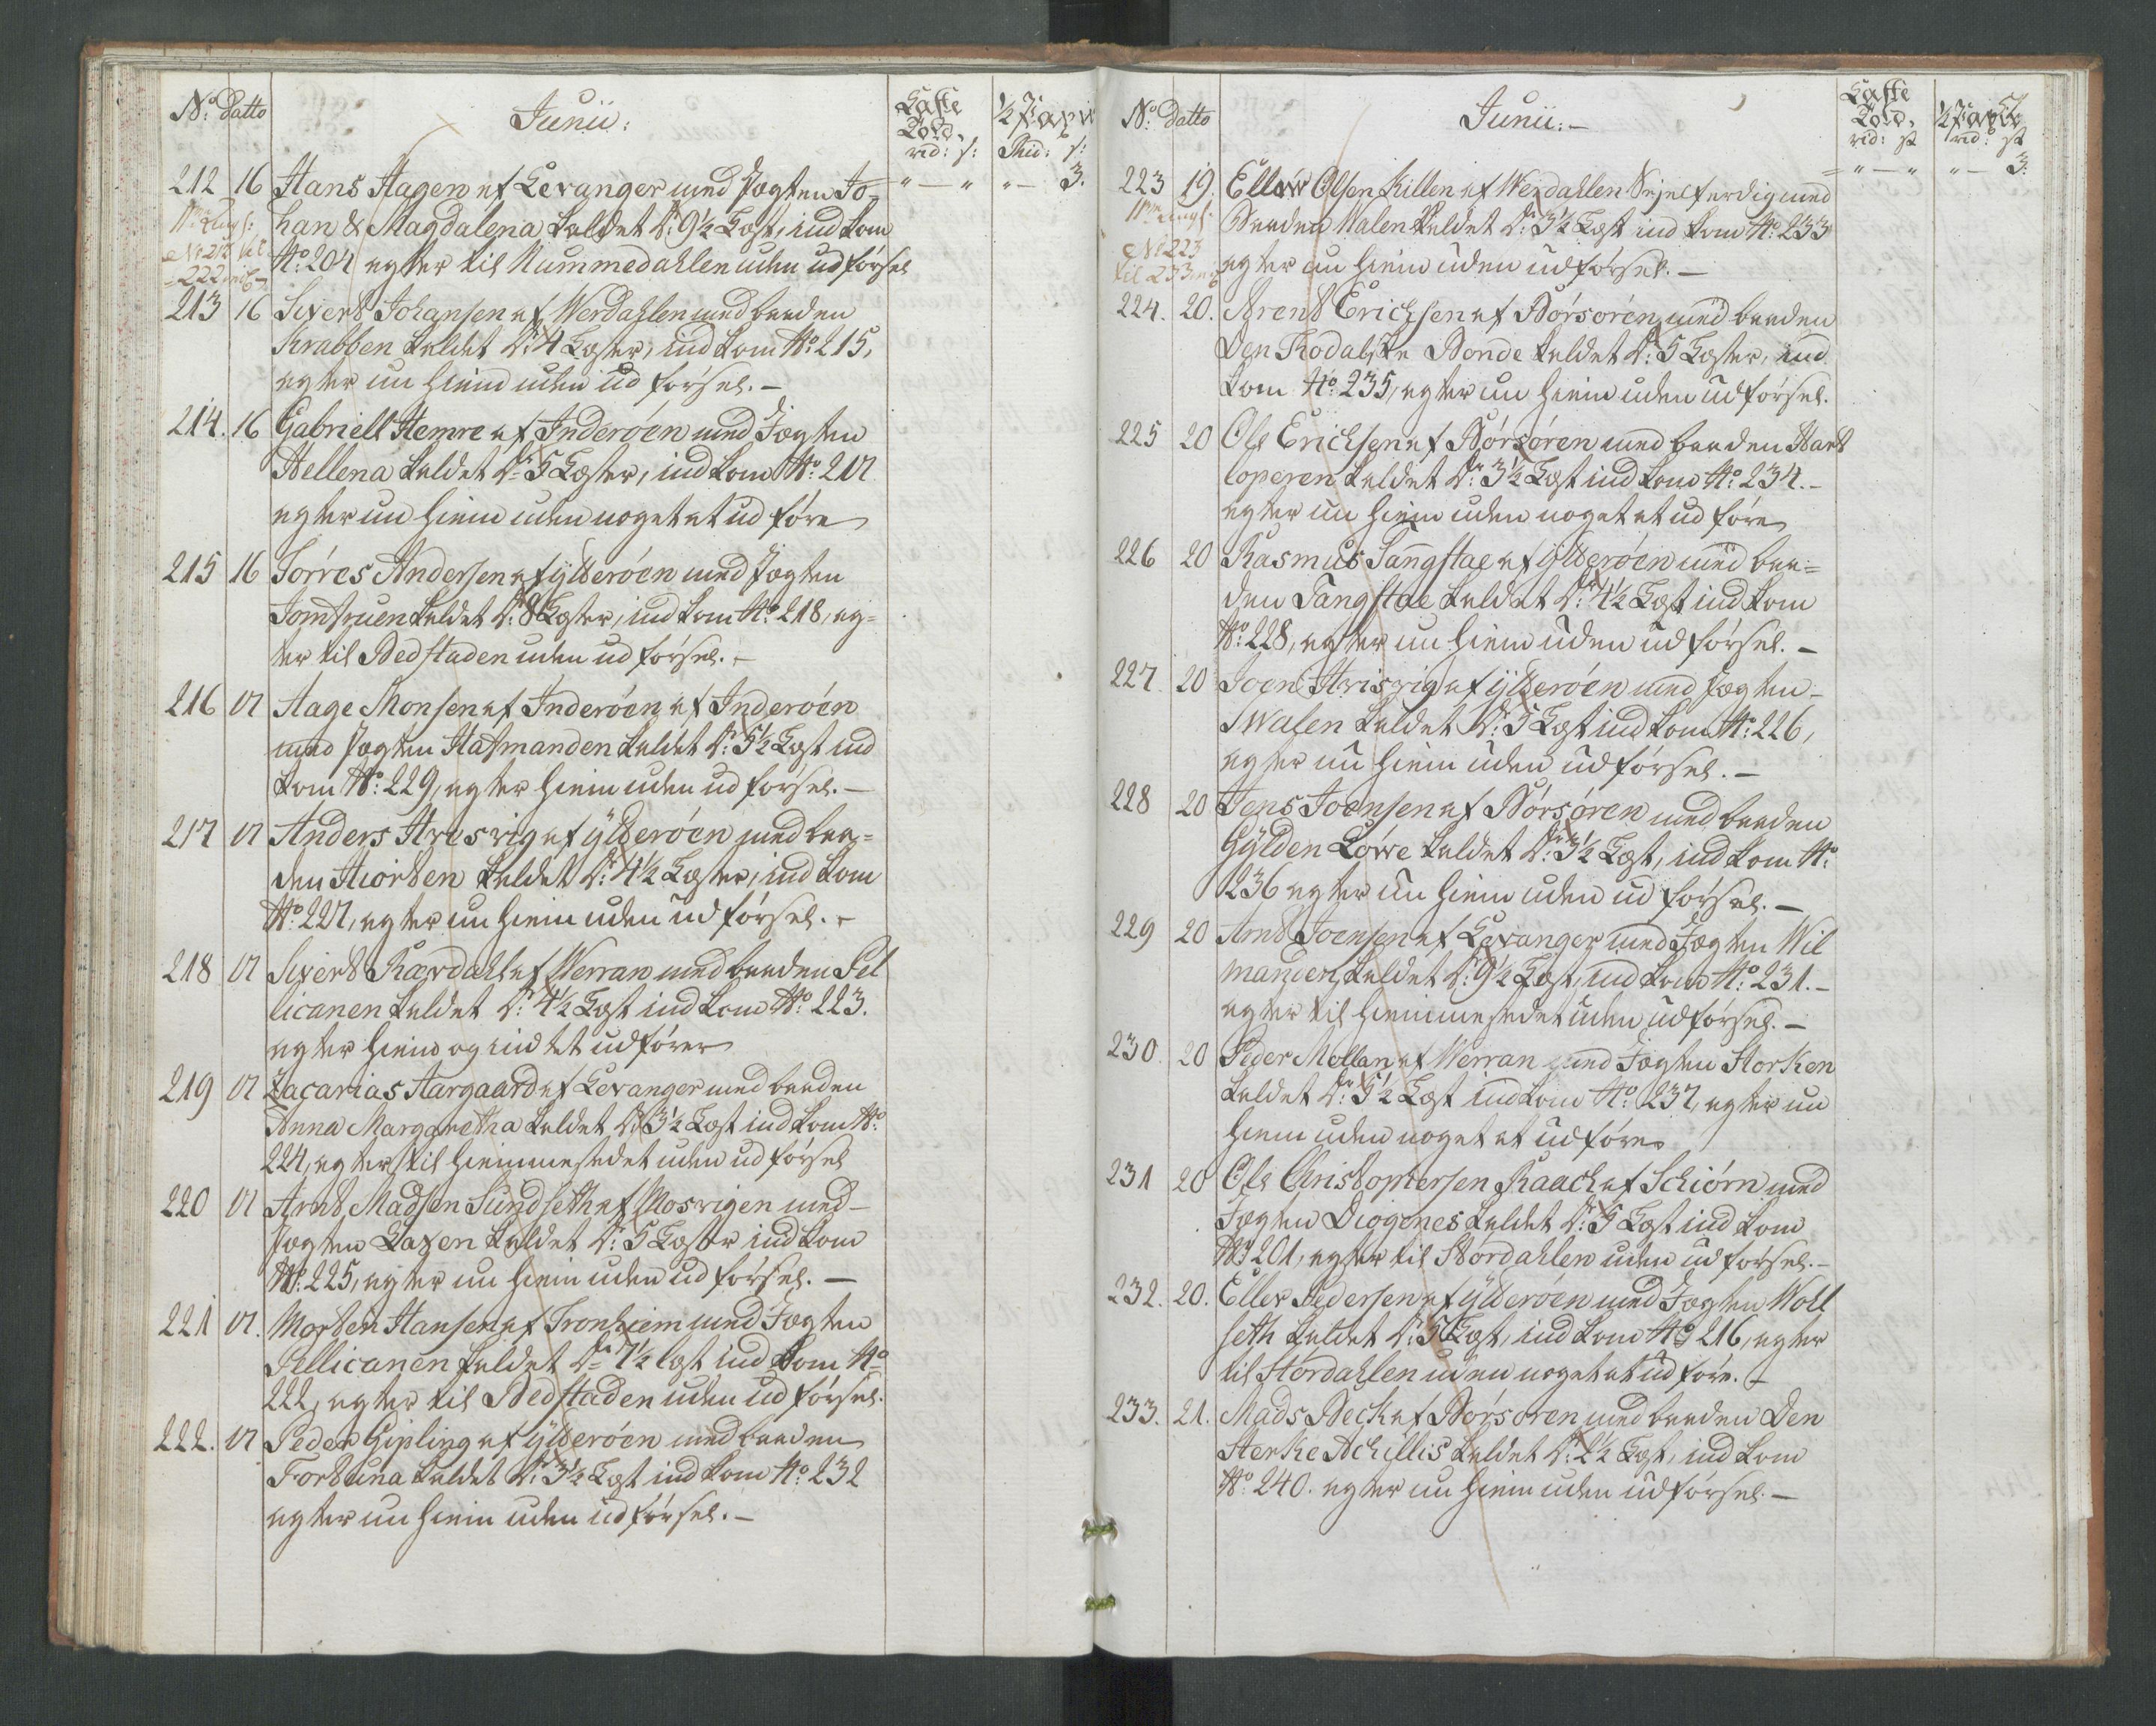 No: datto
Junii:
Læste Told. rd: s:
½ Part Rid: s:
212 16 Hans Hagen af Levanger med Jægten Jo= " — " " — 3.
han & Magdalena kaldet Dr: 9½ Læst, ind kom
No: 204 agter til Nummedahlen uden udførsel
No 212 til
222
213 16 Sivert Johansen af Werdahlen med baaden
Krabben kaldet Dr: 4 Læster, ind kom No: 215,
agter nu hiem uden ud førsel. —
214. 16 Gabriell Hemre af Inderøen med Jægten
Hellena kaldet Dr: 5 Læster, ind kom No: 217
agter nu hiem uden noget at ud føre
215 16 Sørres Andersen af Ytterøen med Jægten
Jomfruen kaldet Dr: 8 Læster, ind kom No: 218, ag=
ter til Bedstaden uden ud førsel. —
216 17 Aage Monsen af Inderøen af Inderøen
med Jægten Hafmanden kaldet Dr: 5½ Læst ind
kom No: 229, agter hiem uden ud førsel. —
217 17 Anders Hresvig af Ytterøen med baa=
den Hiorten kaldet Dr: 4½ Læster, ind kom
No: 227, agter nu hiem uden ud førsel. —
218 17 Sivert Rørdahl af Werran med baaden Pel
licanen kaldet Dr: 4½ Læst ind kom No: 223.
agter hiem og indtet udfører
219 17 Zacarias Aargaard af Levanger med baaden
Anna Margaretha kaldet Dr: 3½ Læst ind kom No:
224, agter til hiemmestedet uden ud førsel
220 17 Arnt Madsen Sundseth af Mosvigen med —
Jægten Laxen kaldet Dr: 5 Læster ind kom
No: 225, agter nu hiem uden ud førsel. —
221 17. Morten Hansen af Tronhiem med Jægten
Pellicanen kaldet Dr: 7½ læst ind kom No
222, agter til Bedstaden uden ud førsel.
222. 17 Peder Gipling af Ytterøen med baaden
Fortuna kaldet Dr: 3½ Læst ind kom No: 232
agter nu hiem uden ud førsel. —
No: datto
Junii: —
Læste Told. rd: s
½ Part rd: s
223 19. Ellev Olsen Killen af Werdahlen Sejelferdig med " — " " — 3:
Baaden Walen kaldet Dr: 3½ Læst ind kom No: 233
No 223
til 233
agter nu hiem uden udførsel. —
224. 20. Arent Erichsen af Børsøren med baaden
Den Rodalske Bonde kaldet Dr: 5 Læster, ind
kom No: 235, agter nu hiem uden udførsel.
225 20 Ole Erichsen af Børsøren med baaden Hart
loperen kaldet Dr: 3½ Læst ind kom No: 234. —
agter nu hiem uden noget at ud føre
226 20 Rasmus Tangstae af Ytterøen med baa=
den Tangstae kaldet Dr: 4½ Læst ind kom
No: 228, agter nu hiem uden ud førsel. —
227 20 Joen Hrisvig af Ytterøen med Jægten —
Svalen kaldet Dr: 5 Læst ind kom No: 226,
agter nu hiem uden udførsel. —
228 20 Jens Joensen af Børsøren med baaden
Gylden Løwe kaldet Dr: 3½ Læst, ind kom No:
236 agter nu hiem uden ud førsel. —
229 20 Arnt Joensen af Levanger med Jægten Wil
manden kaldet Dr: 9½ Læst, ind kom No: 231. —
agter til hiemmestedet uden udførsel. —
230. 20 Peder Mollan af Werran med Jægten Storken
kaldet Dr: 5½ Læst ind kom No: 237, agter nu
hiem uden noget at udføre
231 20 Ole Christophersen Raach af Schiørn med
Jægten Diogenes kaldet Dr: 5 Læst ind kom
No 201, agter til Stordahlen uden ud førsel. —
232. 20. Eller Pedersen af Ytterøen med Jægten Woll
seth kaldet Dr: 5 Læst, ind kom No: 216, agter
til Stordahlen uden noget at udføre. —
233. 21. Mads Bech af Børsøren med baaden Den
Sterke Achillis kaldet Dr: 2½ Læst, ind kom
No: 240. agter nu hiem uden udførsel. —